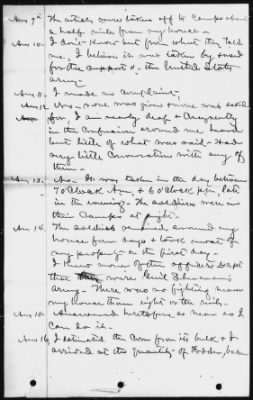 Ans 9th The articles were taken off to Camps about
a half mile from my house -
Ans 10 - I don't know but from what they told
me, I believe it was taken by & used
for the support of the United States
army -
Ans 11 - I made no complaint,
Ans 12 No - none was given & none was asked
for, I am nearly deaf & Consequently
in the Confusion around me heard
but little of what was said - & had
very little Conversation with any of
them -
Ans 13 - No - It was taken in the day between
7 O'Clock Am & 6 O'Clock pm, late
in the evening - The soldiers were in
their Camps at night -
Ans 14 The soldiers remained around my
house four days & took most of
my property on the first day -
I knew none of the officers except
that they were Genl Shermans
army - There was no fighting near
my house then right or the
Ans 15 - Answered heretofore as near as I
can do it -
Ans 16 I estimated the Corn from its bulk & I
arrived at the quantity of Fodder,